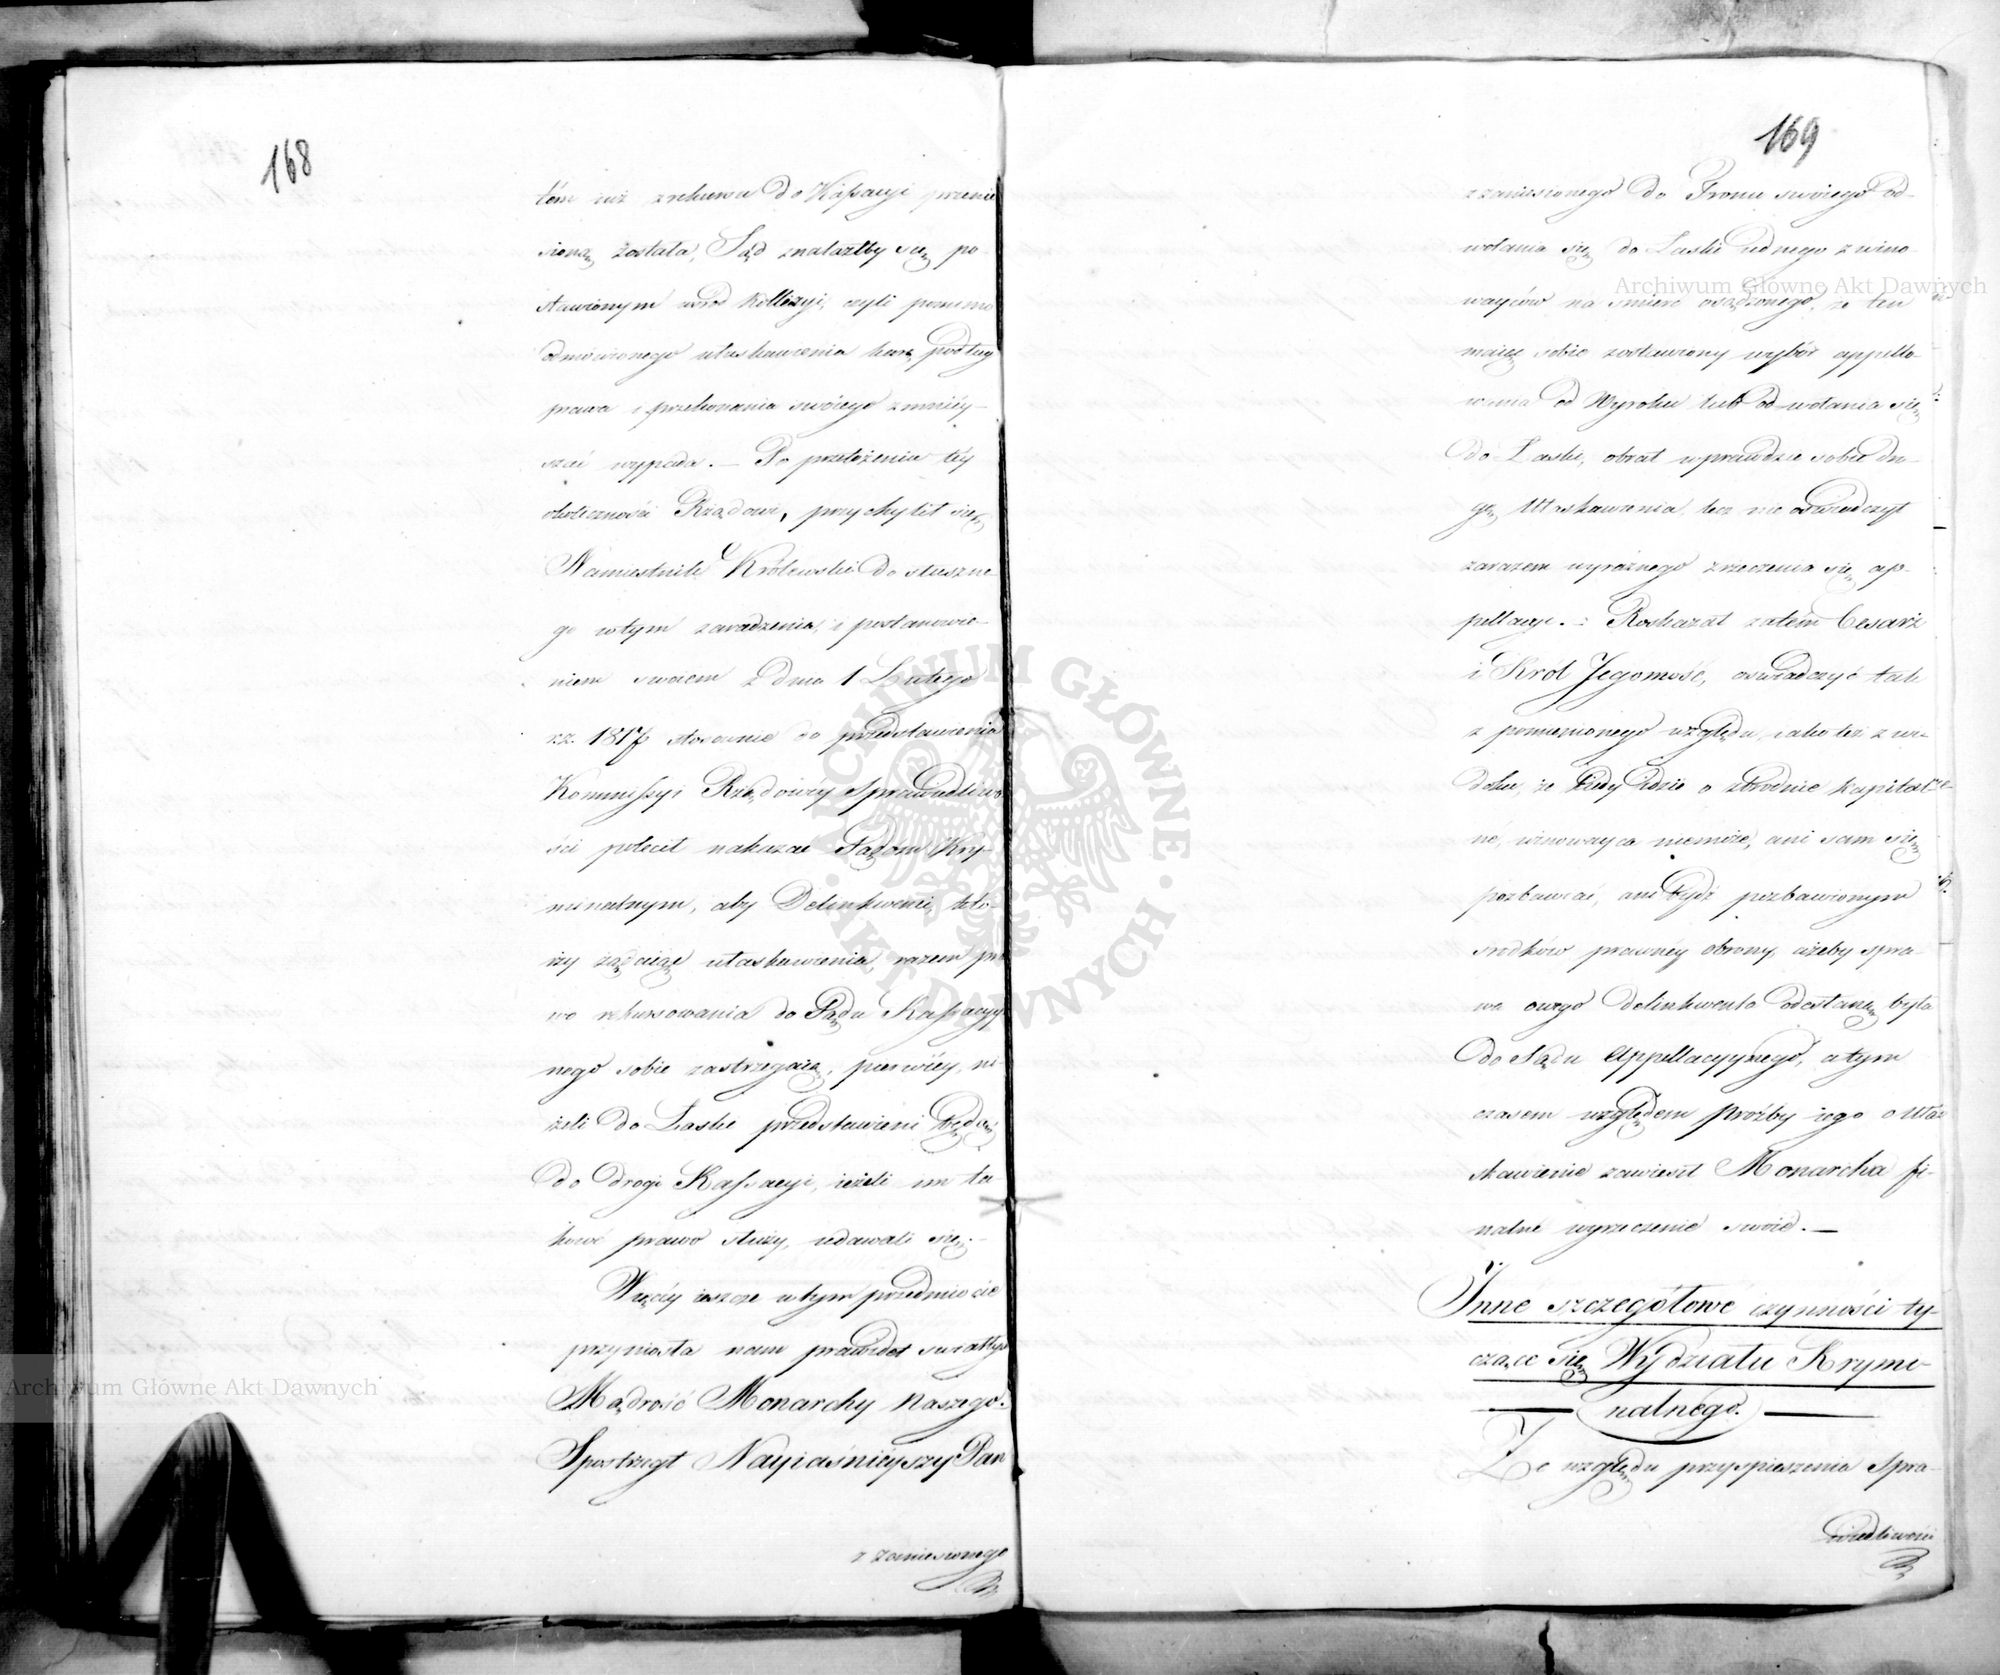 168
tém już z rekursu do Kassacyi przenie
sioną została, Sąd znalazłby się po-
stawionym wśród kollizyi, czyli pomimo
odmówionego ułaskawienia karę podług
prawa i przekonania swoiego zmniey-
szać wypada. — Po przełożeniu téy
okoliczności Rządowi, przychylił się
Namiestnik Królewski do słuszne
go w tym zaradzenia, i postanowie-
niem swoiem z dnia 1 Lutego
r.z. 1817 stosownie do przedstawienia
Kommissyi Rządowéy Sprawiedliwo
ści polecił nakazać Sądom Kry-
minalnym, aby Delinkwenci, któ-
rzy żądaiąc ułaskawienia, razem pra
wo rekursowania do Sądu Kassacyy
nego sobie zastrzegaią, pierwiéy, ni
żeli do Łaski przedstawieni będą,
do drogi Kassacyi, ieżeli im ta
kowe prawo służy, udawali się. —
Więcéy ieszcze w tym przedmiocie
przyniosła nam prawideł światłych
Mądrość Monarchy Naszego.
Spostrzegł Nayiaśnieyszy Pan
z zaniesionego
169
z zaniesionego do Tronu swoiego od-
wołania się do Łaski iednego z wino-
wayców na śmierć osądzonego, że ten
maiąc sobie zostawiony wybór appello-
wania od Wyroku lub odwołania się
do Łaski, obrał wprawdzie sobie dro-
gę Ułaskawienia, lecz nie oświadczył
zarazem wyraźnego zrzeczenia się ap-
pellacyi. — Roskazał zatém Cesarz
i Król Jegomość, oświadczyć tak
z pomienionego względu, iako też z wi-
doku, że kiedy idzie o zbrodnie kapital-
né, winowayca niemoże, ani sam się
pozbawiać, ani bydź pozbawionym
środków prawnéy obrony, ażeby spra-
wa onego Delinkwenta odesłaną była
do Sądu Appellacyynego, a tym
czasem względem proźby iego o Uła-
skawienie zawiesił Monarcha fi-
nalné wyrzeczenie swoie. —
Inne szczegółowe czynności ty-
czące się Wydziału Krymi-
nalnego.
Ze względu przyspieszenia Spra-
wiedliwości
Archiwum Główne Akt Dawnych
Archiwum Główne Akt Dawnych
ARCHIWUM GŁÓWNE AKT DAWNYCH